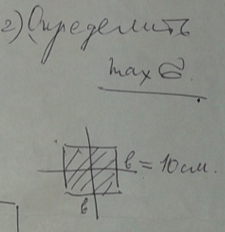 2) Определить
max σ.
в = 10 см.
в